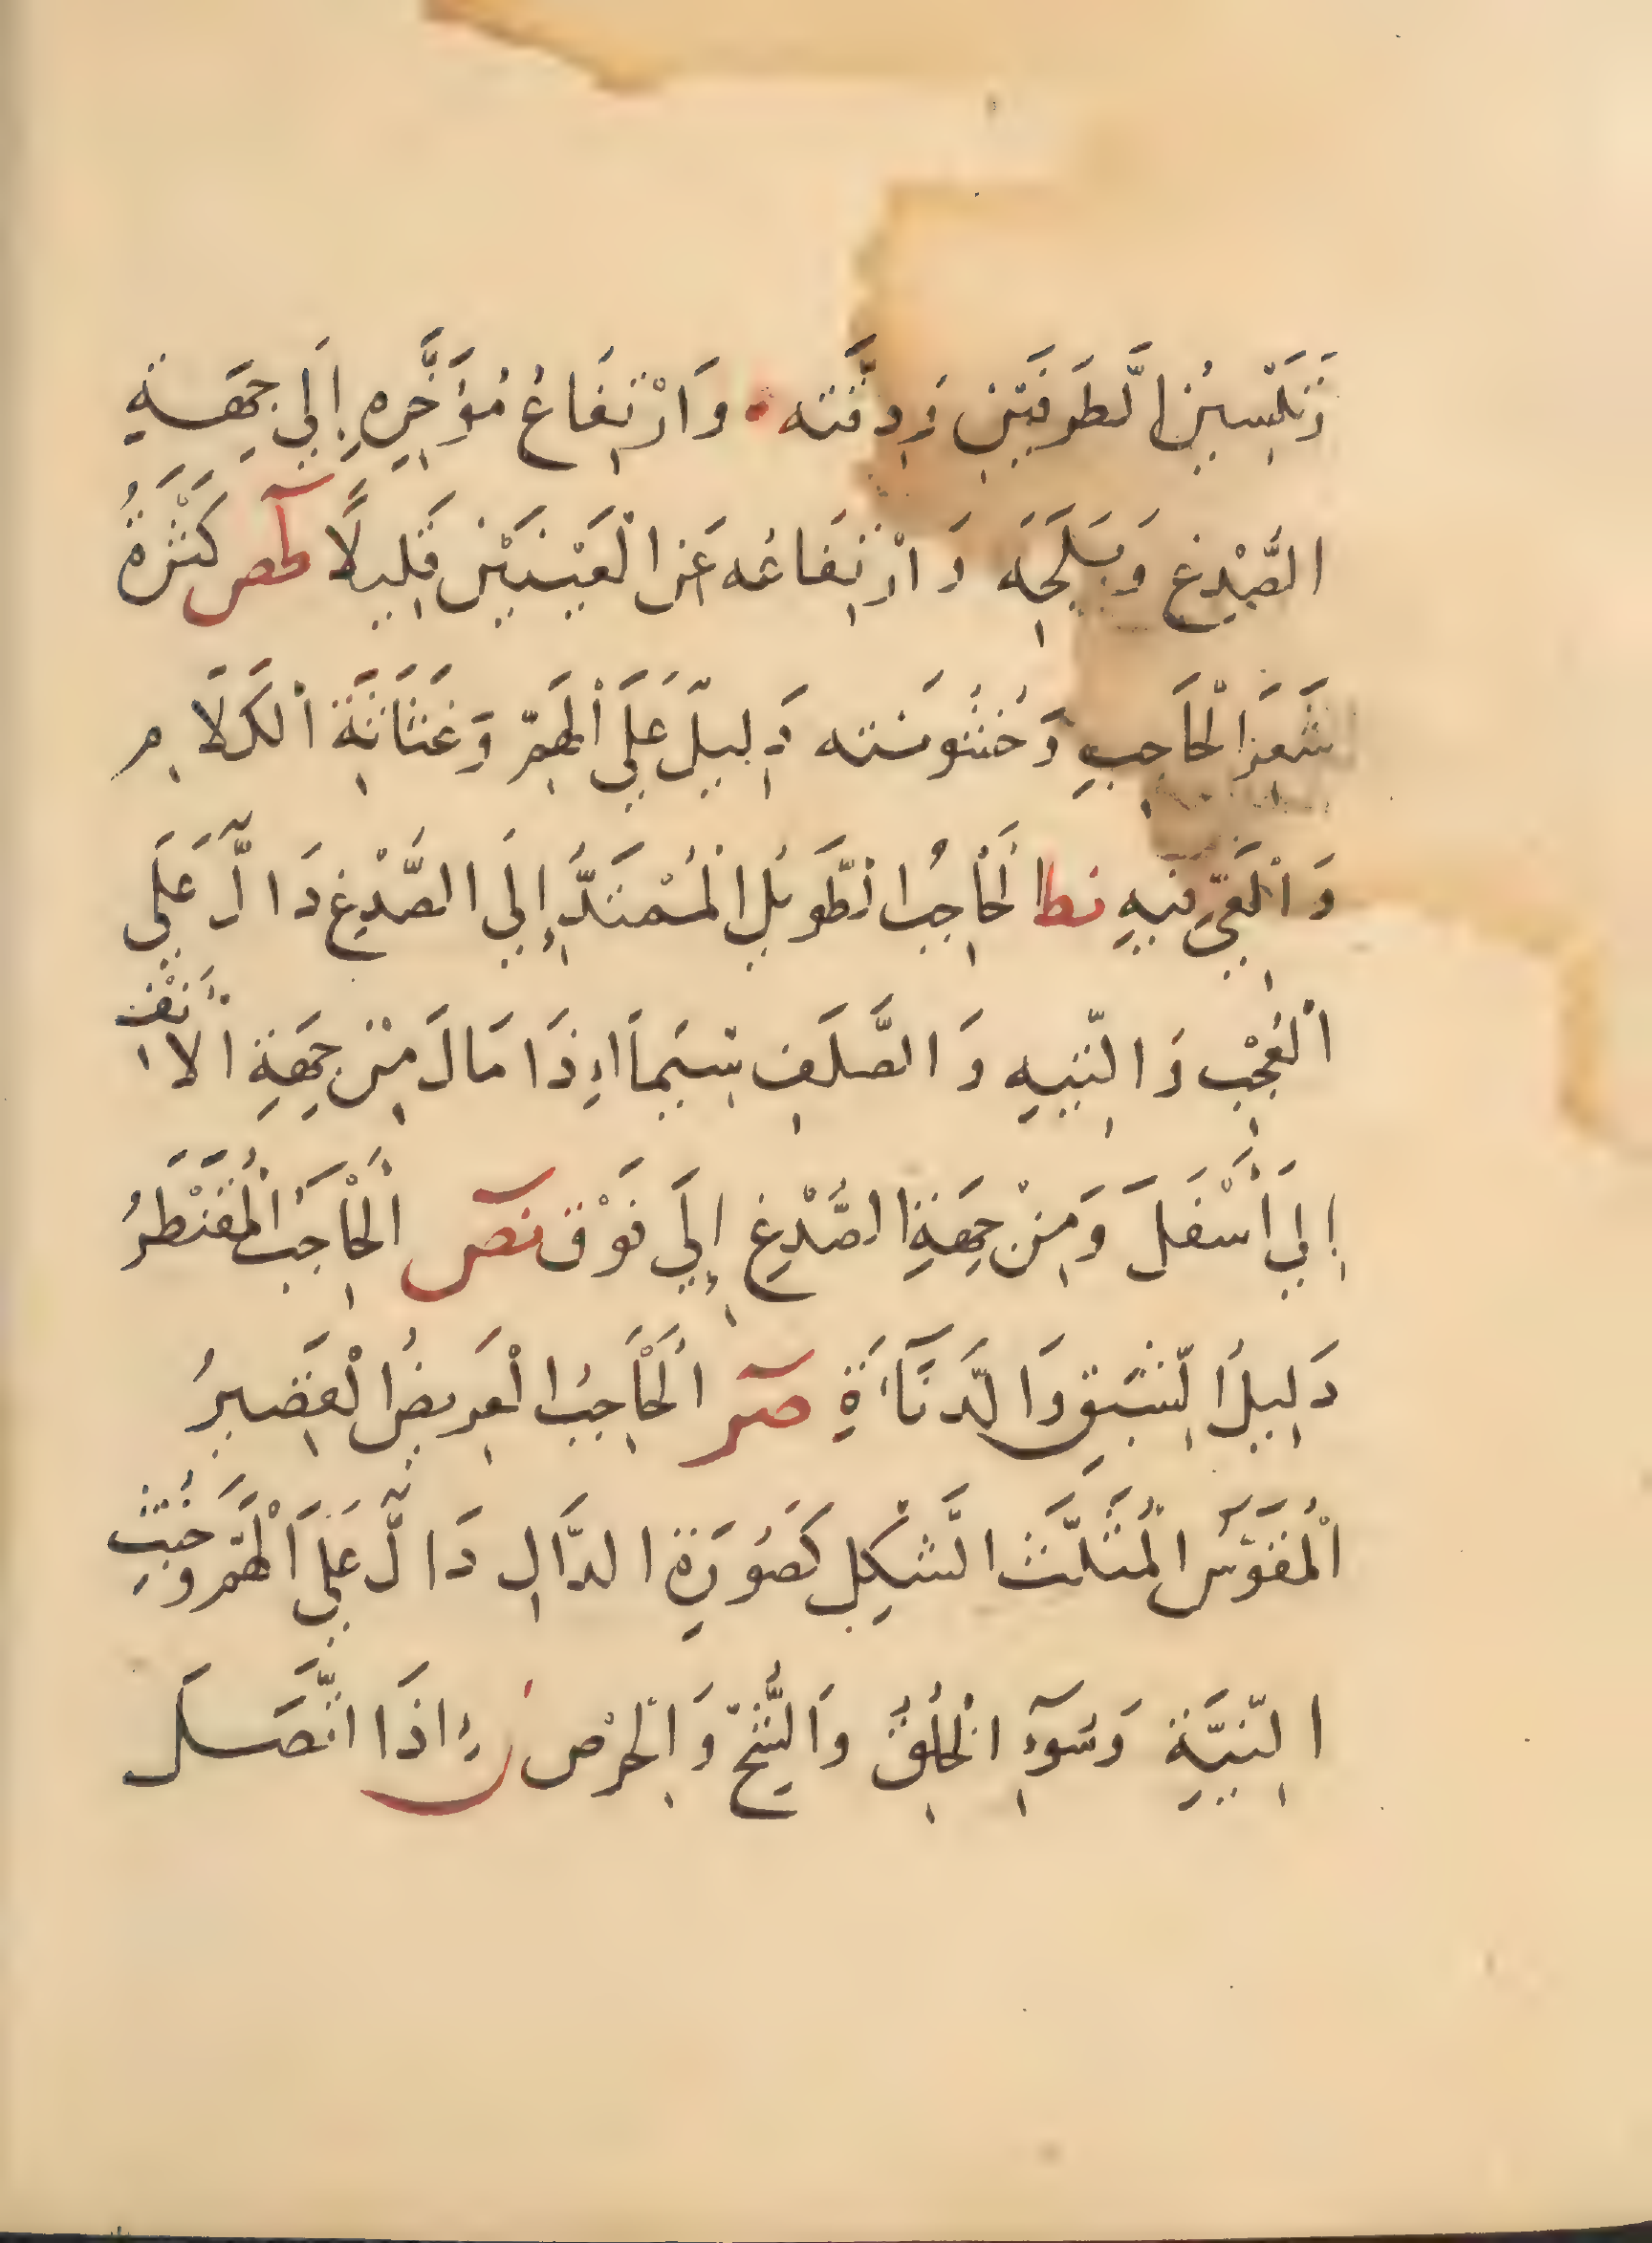 وَتَلْسِينُ الطَّرَفَيْنِ وَدِقَّتُه وَارْتِفَاعُ مُؤَخَّرِهِ إِلَى جِهَةِ
الصُّدْغِ وَبَلَجِه وَارْتِفَاعُه عَنِ الْعَيْنَيْنِ قَلِيلًا طص كَثْرَةُ
شَعَرِ الْحَاجِبِ وَخُشُونَته دَلِيلٌ عَلَى الْهَمِّ وَغَثَاثَةِ الْكَلَامِ
وَالْعَيِّ فِيهِ نط الْحَاجِبُ الطَّوِيلُ الْمُمْتَدُّ إِلَى الصُّدْغِ دَالٌّ عَلَى
الْعُجْبِ وَالتِّيهِ وَالصَّلَفِ سِيَّمَا إِذَا مَالَ مِنْ جِهَةِ الْأَنْفِ
إِلَى أَسْفَلَ وَمِنْ جِهَةِ الصُّدْغِ إِلَى فَوْق نص الْحَاجِبُ الْمُقَنْطَرُ
دَلِيلُ الشَّبَقِ وَالدَّنَآءَةِ صر الْحَاجِبُ الْعَرِيضُ الْقَصِيرُ
الْمُقَوَّسُ الْمُثَلَّثُ الشَّكْلِ كَصُورَةِ الدَّالِ دَالٌّ عَلَى الْهَمِّ وَخُبْثِ
النِّيَّةِ وَسُوٓءِ الْخُلُقِ وَالشُّحِّ وَالْحِرْصِ ن إِذَا اتَّصَلَ